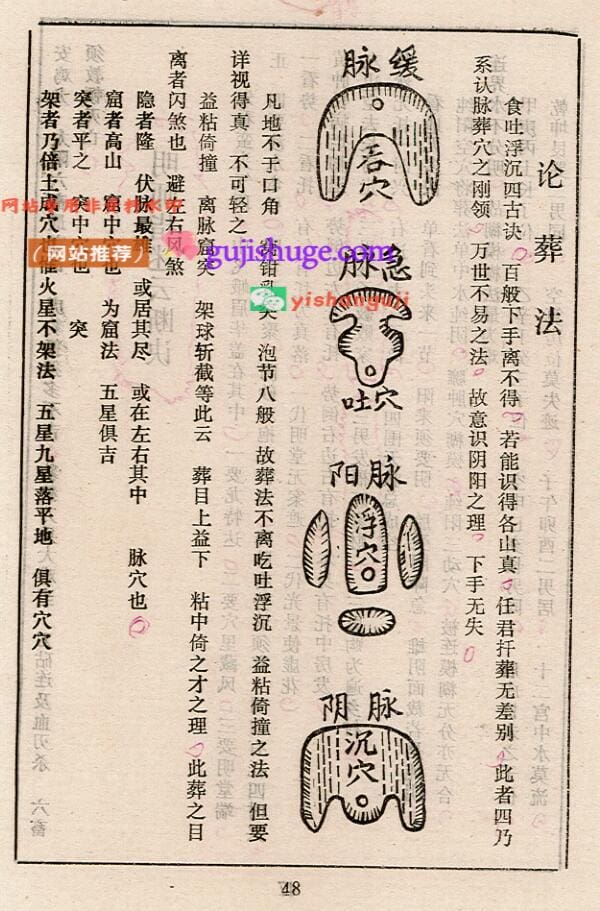 论葬法
食吐浮沉四古诀 百般下手离不得 若能识得各山真 任君扦葬无差别 此者四乃
系认脉葬穴之刚领 万世不易之法 故意识阴阳之理 下手无失
缓脉
吞穴
急脉
吐穴
阳脉
浮穴
阴脉
沉穴
凡地不于口角 钳 泡节八般 故葬法不离吃吐浮沉 益粘倚撞之法 但要
详视得真 不可轻之
益粘倚撞 离脉窟突 架球斩截等此云 葬目上益下 粘中倚之才之理 此葬之目
离者闪煞也 避左右风煞
隐者隆 伏脉最 或居其尽 或在左右其中 脉穴也
窟者高山 窟中也 为窟法 五星俱吉
突者平之 突中也 突
架者乃倍土穴 火星不架法 五星九星落平地 俱有穴穴
48
(网站推荐)
gujishuge.com
yishanguji